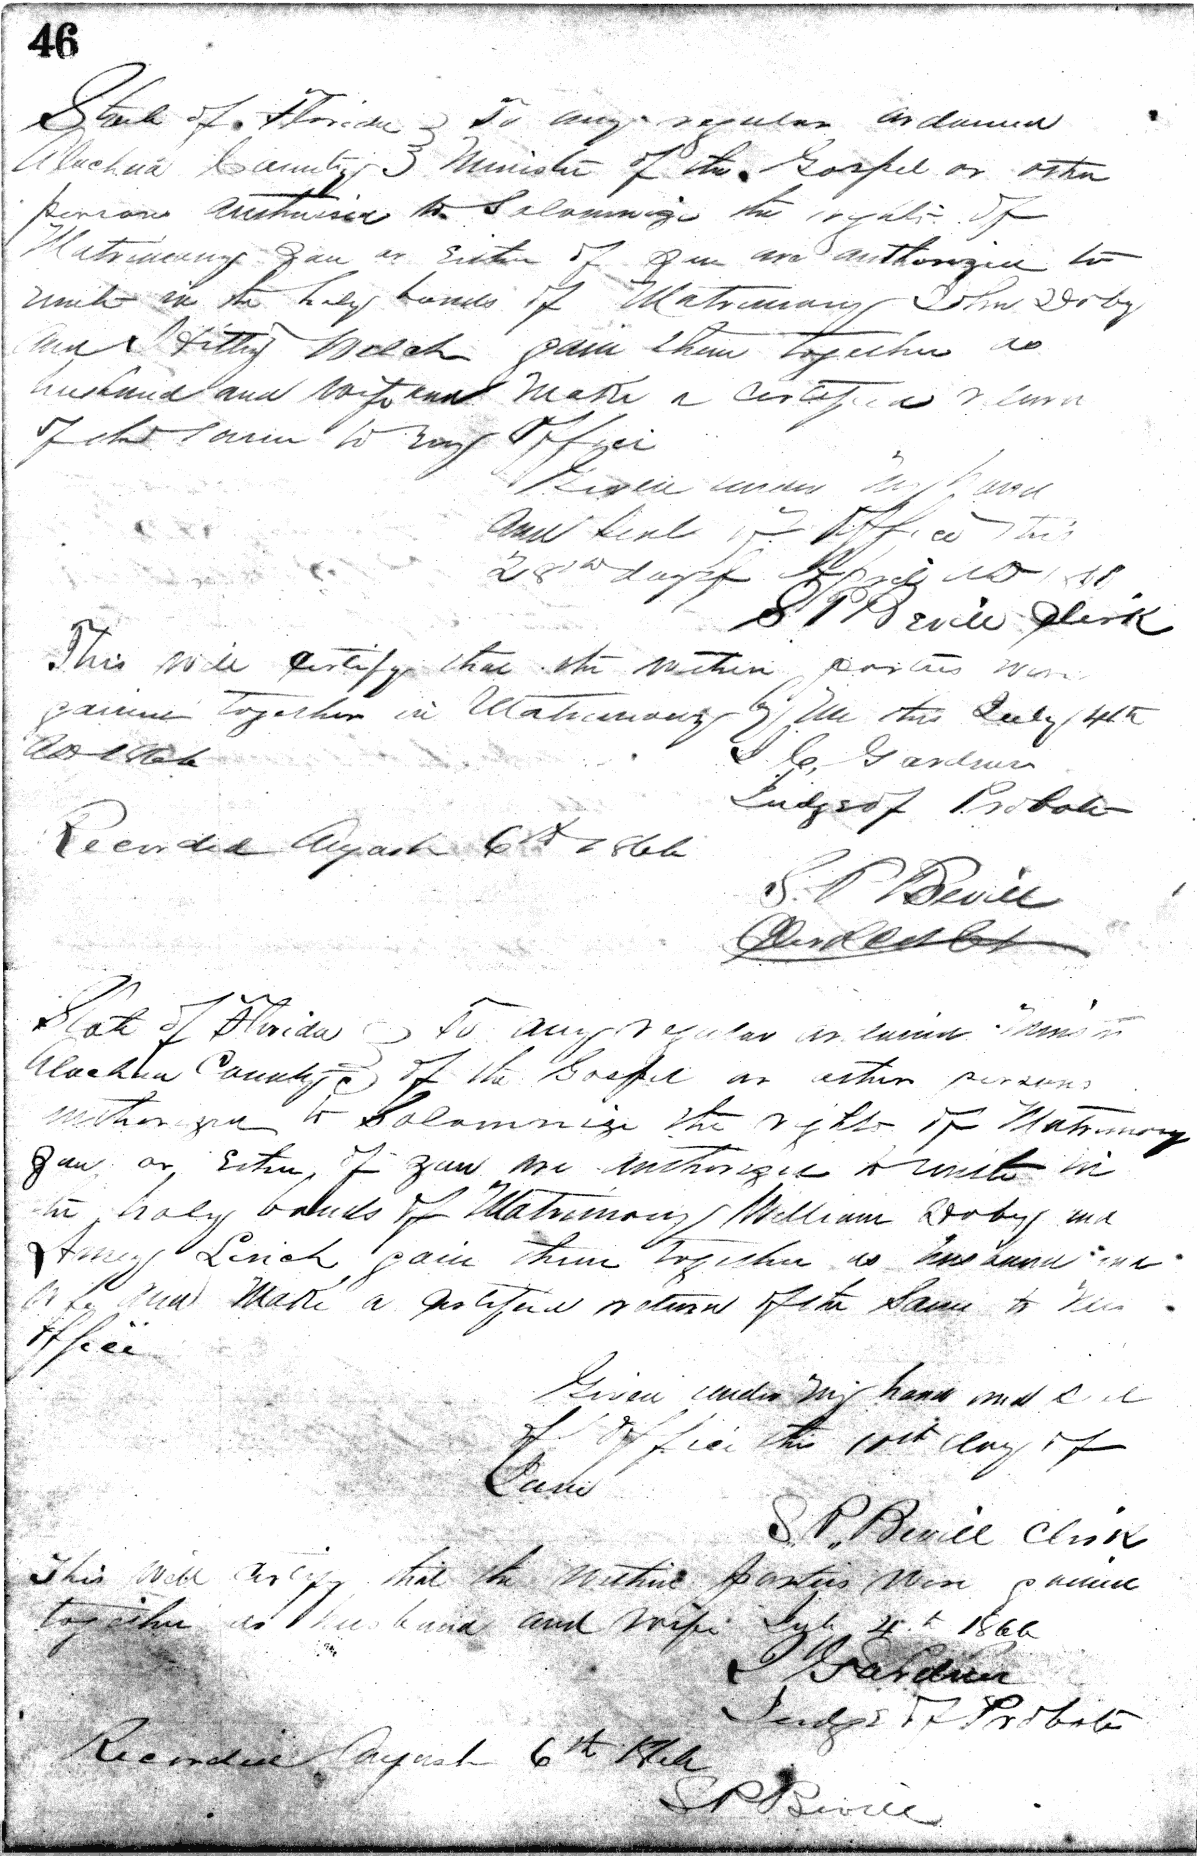 46
State of Florida } To any regular ordained
Alachua County } Minister of the Gospel or other
persons authorised to Solomnize the rights of
Matrimony you or Either of you are authorized to
unite in the holy bonds of Matrimony John Doby
and Kitty Welch join them together as
husband and wife and Make a certified return
of the same to my Office
Given under my hand
and seal of Office this
28th day of April AD
S P Bevill Clerk
This will certify that the within parties were
joined together in Matrimony by Me this July 4th
AD 1866
J C. Gardner
Judge of Probate
Recorded August 6th 1866
S. P Bevill
Clerk
State of Florida } To any regular ordained Minister
Alachua County } of the Gospel or other persons
authorized to Solomnize the rights of Matrimony
you or Either of you are authorized to unite in
the holy bonds of Matrimony William Doby and
Linch join them together as husband and
wife and Make a certified return of the Same to this
Office
Given under My hand and seal
of Office this 10th day of
June
S. P. Bevill Clerk
This will certify that the within parties were joined
together as husband and wife July 4th 1866
J Gardner
Judge of Probate
Recorded August 6th 1866
S P Bevill